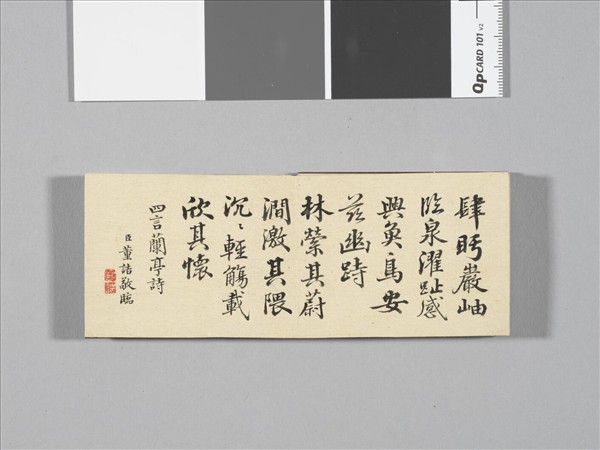 QpCARD 101 v2
肆眄巖岫
臨泉濯趾感
興魚鳥安
茲幽跱
林縈其蔚
澗激其隈
沉〻輕觴載
欣其懷
四言蘭亭詩
臣董誥敬臨